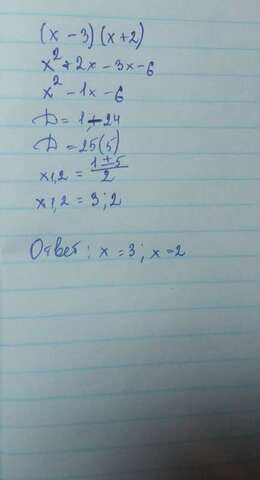 (x - 3)(x + 2)
x² + 2x - 3x - 6
x² - 1x - 6
D = 1 + 24
D = 25(5)
x1,2 = 1±5/2
x1,2 = 3; 2
Ответ: x = 3; x = 2